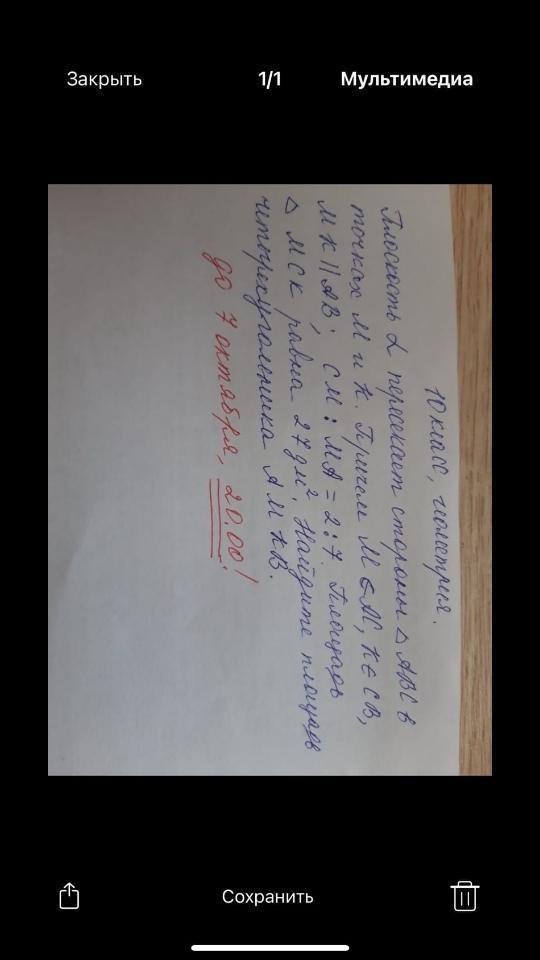 Закрыть
1/1
Мультимедиа
10 класс, геометрия.
Плоскость α пересекает стороны △ ABC в
точках M и K. Причем M ∈ AC, K ∈ CB,
MK || AB; CM : MA = 2:7. Площадь
△ MCK равна 27 дм². Найдите площадь
четырехугольника AMKB.
до 7 октября, 20.00!
Сохранить